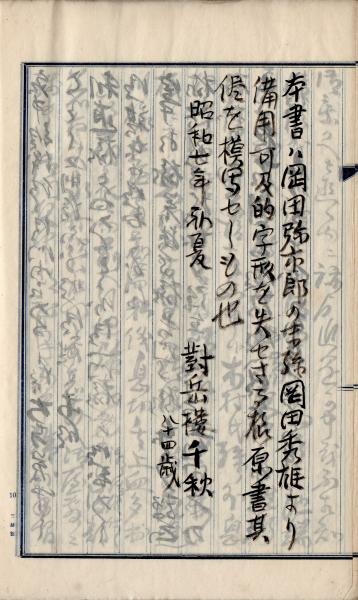 本書ハ岡田弥市郎の末孫岡田秀雄より
備用可及的字形を失せさる様原書其
侭を模写せしもの也
昭和七年初夏
對岳楼千秋
八十四歳
10